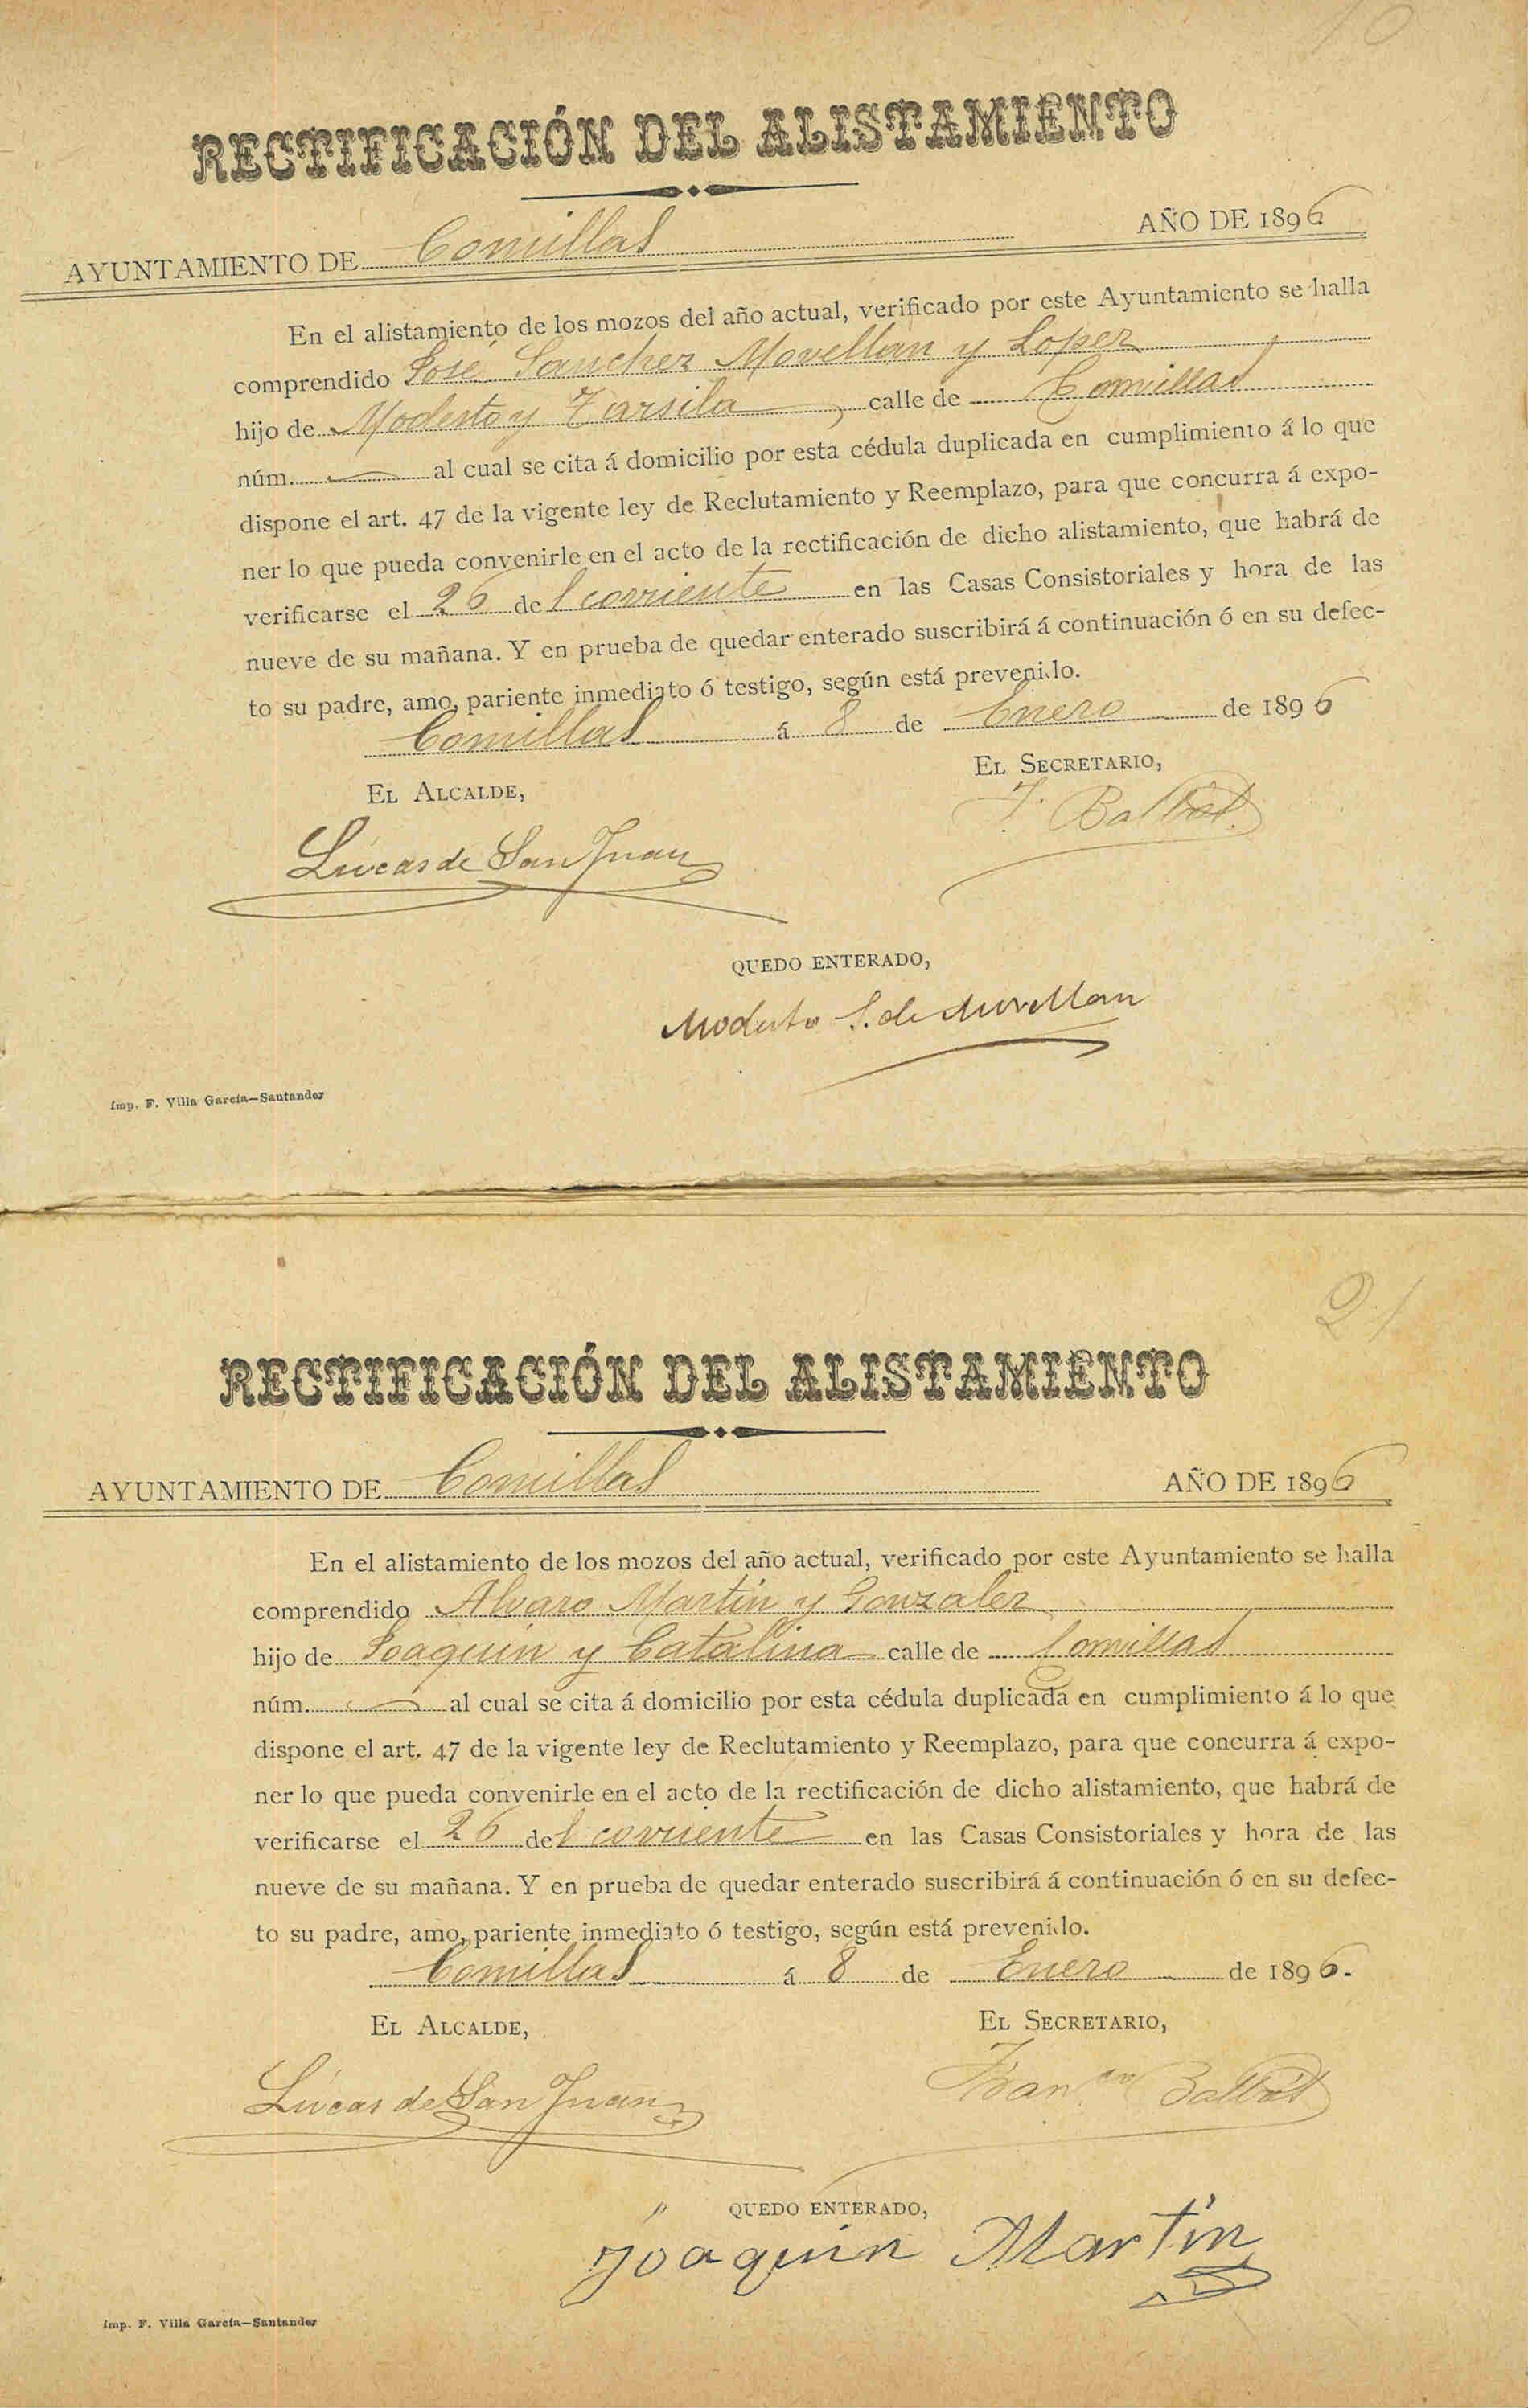 10
RECTIFICACIÓN DEL ALISTAMIENTO
AYUNTAMIENTO DE Comillas AÑO DE 1896
En el alistamiento de los mozos del año actual, verificado por este Ayuntamiento se halla
comprendido José Sanchez Movellan y Lopez
hijo de Modesto y Tarsila, calle de Comillas
núm. al cual se cita á domicilio por esta cédula duplicada en cumplimiento á lo que
dispone el art. 47 de la vigente ley de Reclutamiento y Reemplazo, para que concurra á expo-
ner lo que pueda convenirle en el acto de la rectificación de dicho alistamiento, que habrá de
verificarse el 26 del corriente en las Casas Consistoriales y hora de las
nueve de su mañana. Y en prueba de quedar enterado suscribirá á continuación ó en su defec-
to su padre, amo, pariente inmediato ó testigo, según está prevenido.
Comillas á 8 de Enero de 1896
EL SECRETARIO,
EL ALCALDE,
F. Balbás
Lúcas de San Juan
QUEDO ENTERADO,
Modesto S. de Movellan
Imp. F. Villa García—Santander
21
RECTIFICACIÓN DEL ALISTAMIENTO
AYUNTAMIENTO DE Comillas AÑO DE 1896
En el alistamiento de los mozos del año actual, verificado por este Ayuntamiento se halla
comprendido Alvaro Martin y Gonzalez
hijo de Joaquin y Catalina calle de Comillas
núm. al cual se cita á domicilio por esta cédula duplicada en cumplimiento á lo que
dispone el art. 47 de la vigente ley de Reclutamiento y Reemplazo, para que concurra á expo-
ner lo que pueda convenirle en el acto de la rectificación de dicho alistamiento, que habrá de
verificarse el 26 del corriente en las Casas Consistoriales y hora de las
nueve de su mañana. Y en prueba de quedar enterado suscribirá á continuación ó en su defec-
to su padre, amo, pariente inmediato ó testigo, según está prevenido.
Comillas á 8 de Enero de 1896.
EL ALCALDE, EL SECRETARIO,
Lúcas de San Juan Franco Balbás
QUEDO ENTERADO,
Joaquin Martin
Imp. F. Villa García—Santander